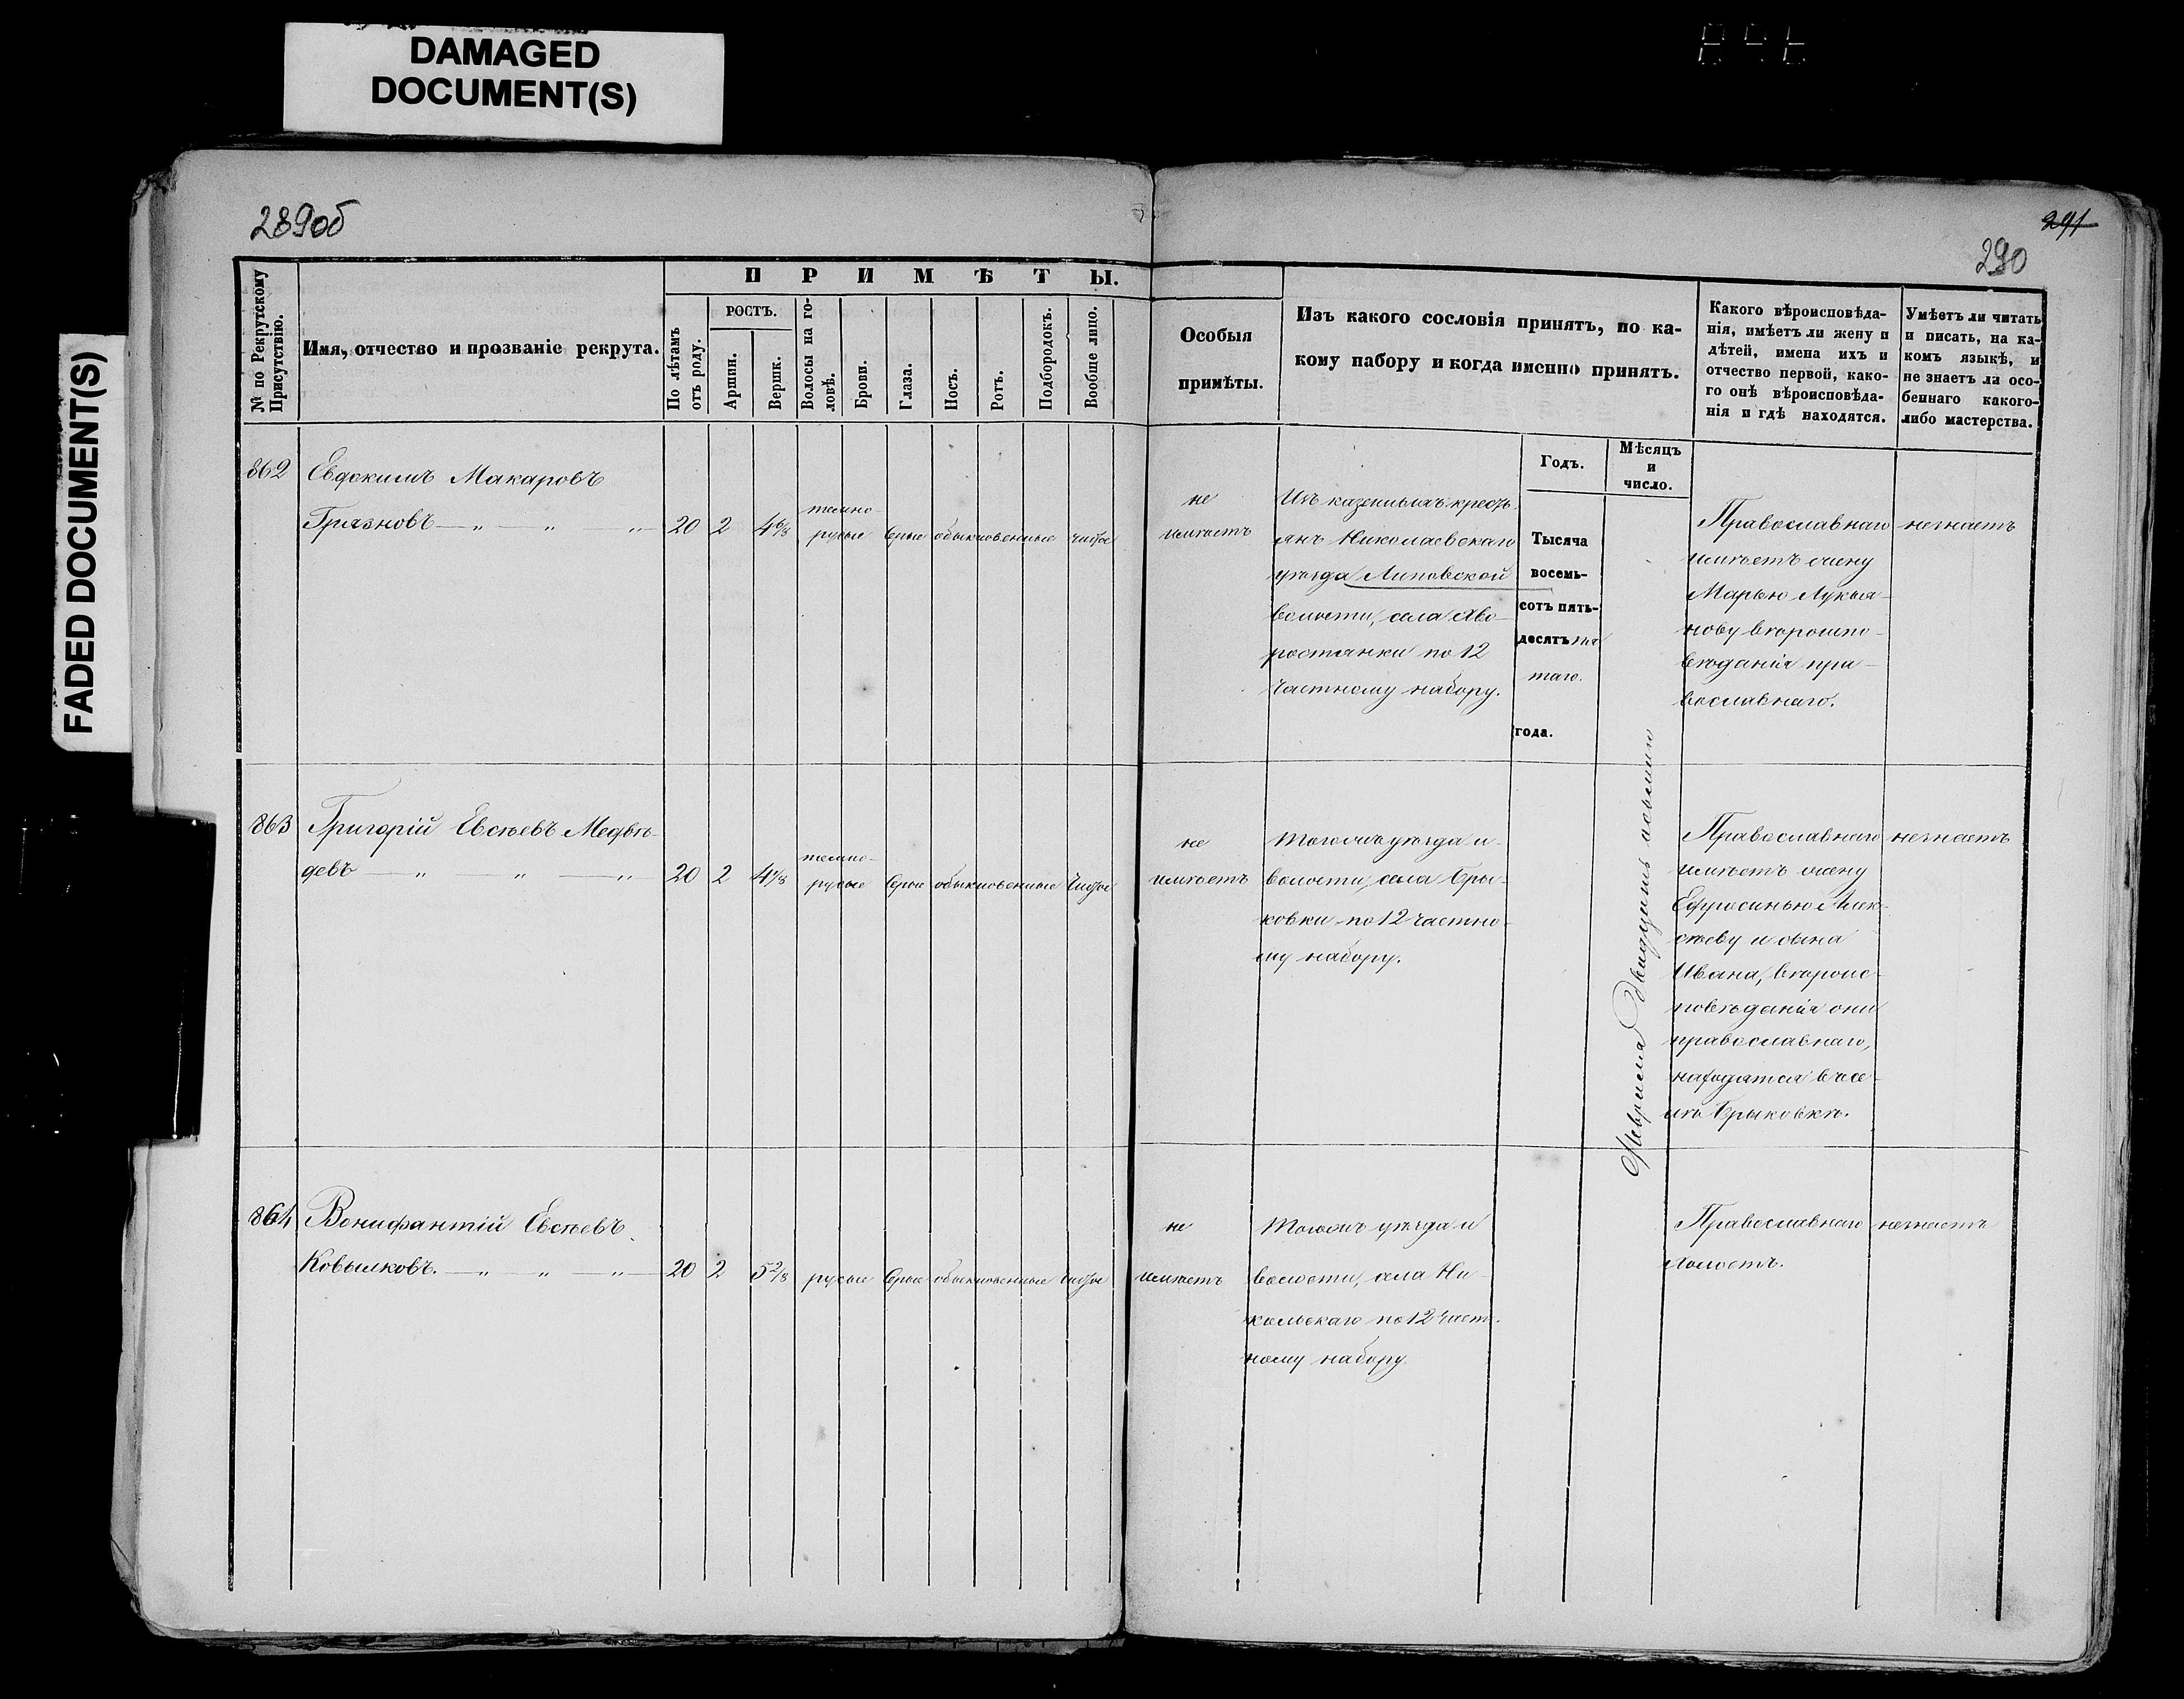 DAMAGED
DOCUMENT(S)
FADED DOCUMENT(S)
289об
291
290
№ по Рекрутскому
Присутствію.
Имя, отчество и прозваніе рекрута.
ПРИМѢТЫ.
По лѣтамъ
отъ роду.
РОСТЪ.
Аршин.
Вершк.
Волосы на го-
ловѣ.
Брови.
Глаза.
Носъ.
Ротъ.
Подбородокъ.
Вообще лицо.
Особыя
примѣты.
Изъ какого сословія принятъ, по ка-
кому набору и когда именно принятъ.
Годъ.
Мѣсяцъ
и
число.
Какого вѣроисповѣда-
нія, имѣетъ ли жену и
дѣтей, имена ихъ и
отчество первой, како-
го онѣ вѣроисповѣда-
нія и гдѣ находятся.
Умѣетъ ли читать
и писать, на ка-
комъ языкѣ, и
не знаетъ ли осо-
беннаго какого-
либо мастерства.
862
Евдокимъ Макаровъ
Грязновъ — „ — „ — „
20
2
4 6/8
темно-
русые
Серые
обыкновенные
чистое
не
имѣетъ
Изъ казенныхъ кресть-
янъ Николаевскаго
уѣзда Липовской
волости, села Хво-
ростянки по 12
частному набору.
Тысяча
восемь-
сотъ пять-
десятъ пя
таго.
года.
Февраля двадцать осьмаго
Православнаго
имѣетъ жену
Марью Лукья-
нову вѣроиспо-
вѣданія пра-
вославнаго.
незнаетъ
863
Григорій Евсѣевъ Медвѣ-
девъ — „ — „ — „
20
2
4 1/8
темно-
русые
Серые
обыкновенные
Чистое
не
имѣетъ
Тогожъ уѣзда и
волости, села Бры-
ковки по 12 частно-
му набору.
Православнаго
имѣетъ жену
Ефросинью Алек-
сѣеву и сына
Ивана, вѣроис-
повѣданія они
православнаго,
находятся въ се-
лѣ Брыковкѣ.
незнаетъ
864
Вонифантій Евсѣевъ
Ковылковъ. — „ — „ — „
20
2
5 2/8
русые
Серые
обыкновенные
Чистое
не
имѣетъ
Тогожъ уѣзда и
волости, села Ни-
кольскаго по 12 част-
ному набору
Православнаго
Холостъ.
незнаетъ